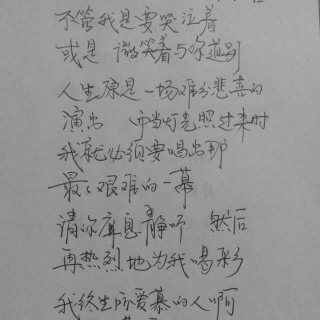 不管我是要哭泣着
或是 微笑着与你道别
人生原是一场难分悲喜的
演出 当灯光照过来时
我就必须要唱出那
最最艰难的一幕
请你屏息静听 然后
再热烈地为我喝彩
我终生所爱慕的人啊